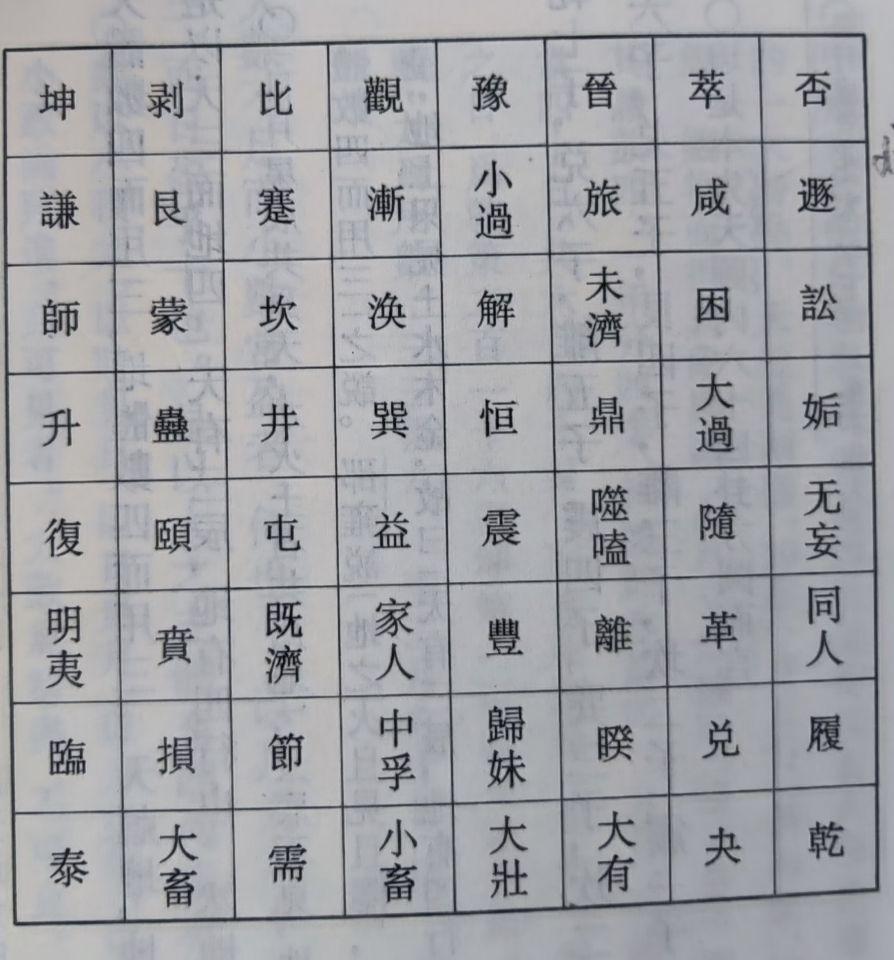 坤 剥 比 觀 豫 晉 萃 否
謙 艮 蹇 漸 小過 旅 咸 遯
師 蒙 坎 渙 解 未濟 困 訟
升 蠱 井 巽 恒 鼎 大過 姤
復 頤 屯 益 震 噬嗑 隨 无妄
明夷 賁 既濟 家人 豐 離 革 同人
臨 損 節 中孚 歸妹 睽 兑 履
泰 大畜 需 小畜 大壯 大有 夬 乾